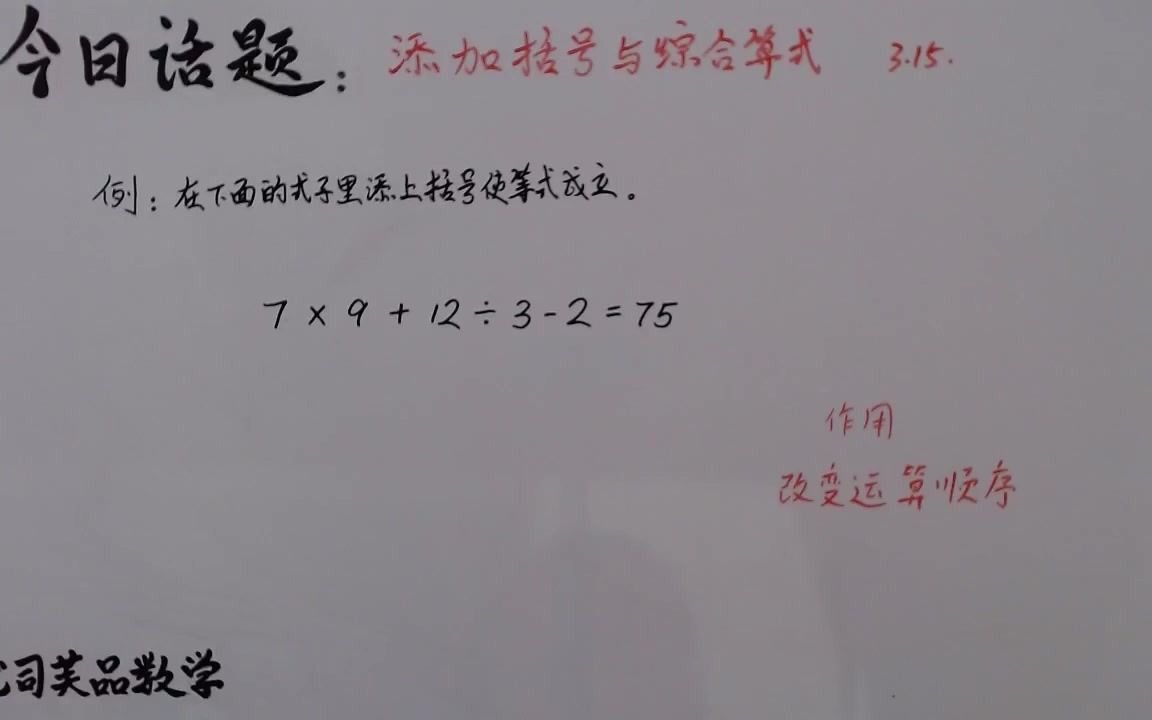 今日话题：添加括号与综合算式 3.15.
例：在下面的式子里添上括号使等式成立。
7 × 9 + 12 ÷ 3 - 2 = 75
作用
改变运算顺序
司芙品数学